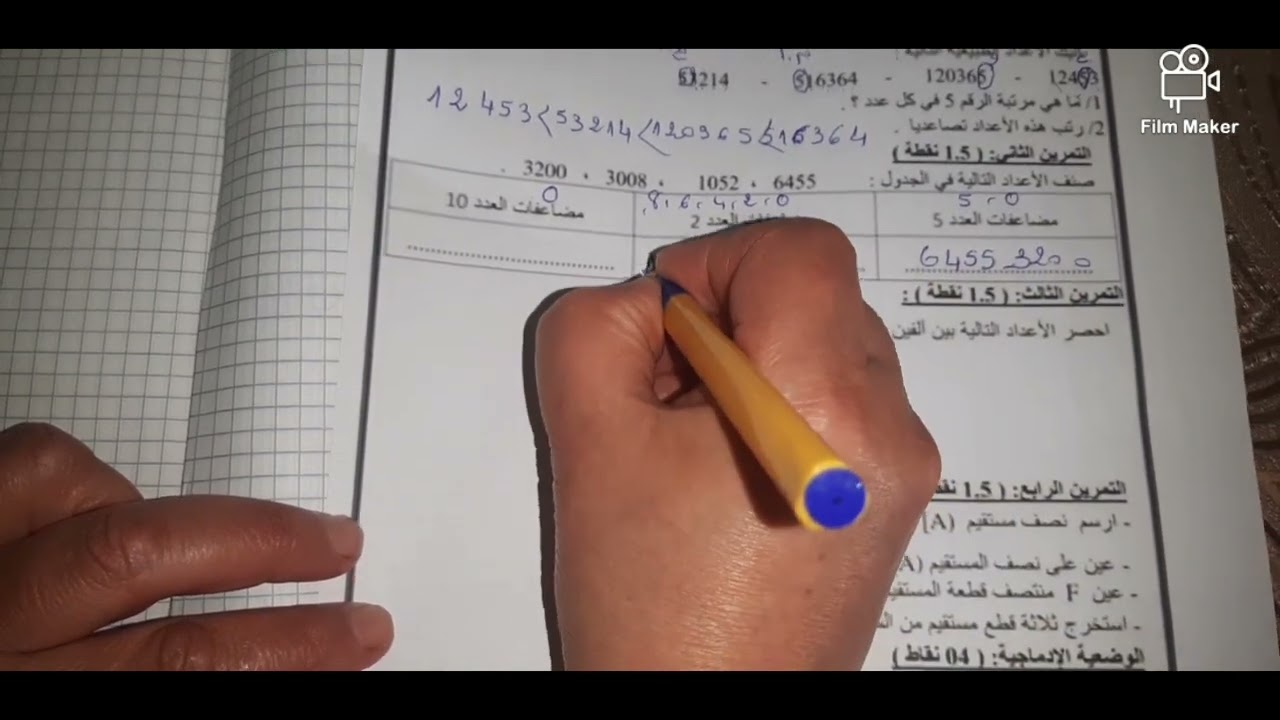 53214 - 516364 - 120365 - 12453
1/ ما هي مرتبة الرقم 5 في كل عدد ؟ .
2/ رتب هذه الأعداد تصاعديا .
12 453<53214<120365<516364
التمرين الثاني: ( 1.5 نقطة )
صنف الأعداد التالية في الجدول : 6455 ، 1052 ، 3008 ، 3200 .
5 . 0
8 . 6 . 4 . 2 . 0
0
مضاعفات العدد 5
العدد 2
مضاعفات العدد 10
6455 3200
التمرين الثالث: ( 1.5 نقطة ) :
احصر الأعداد التالية بين ألفين
التمرين الرابع: ( 1.5
- ارسم نصف مستقيم (A]
- عين على نصف المستقيم (A
- عين F منتصف قطعة
- استخرج ثلاثة قطع مستقيم من
الوضعية الإدماجية: ( 04 نقاط )
Film Maker